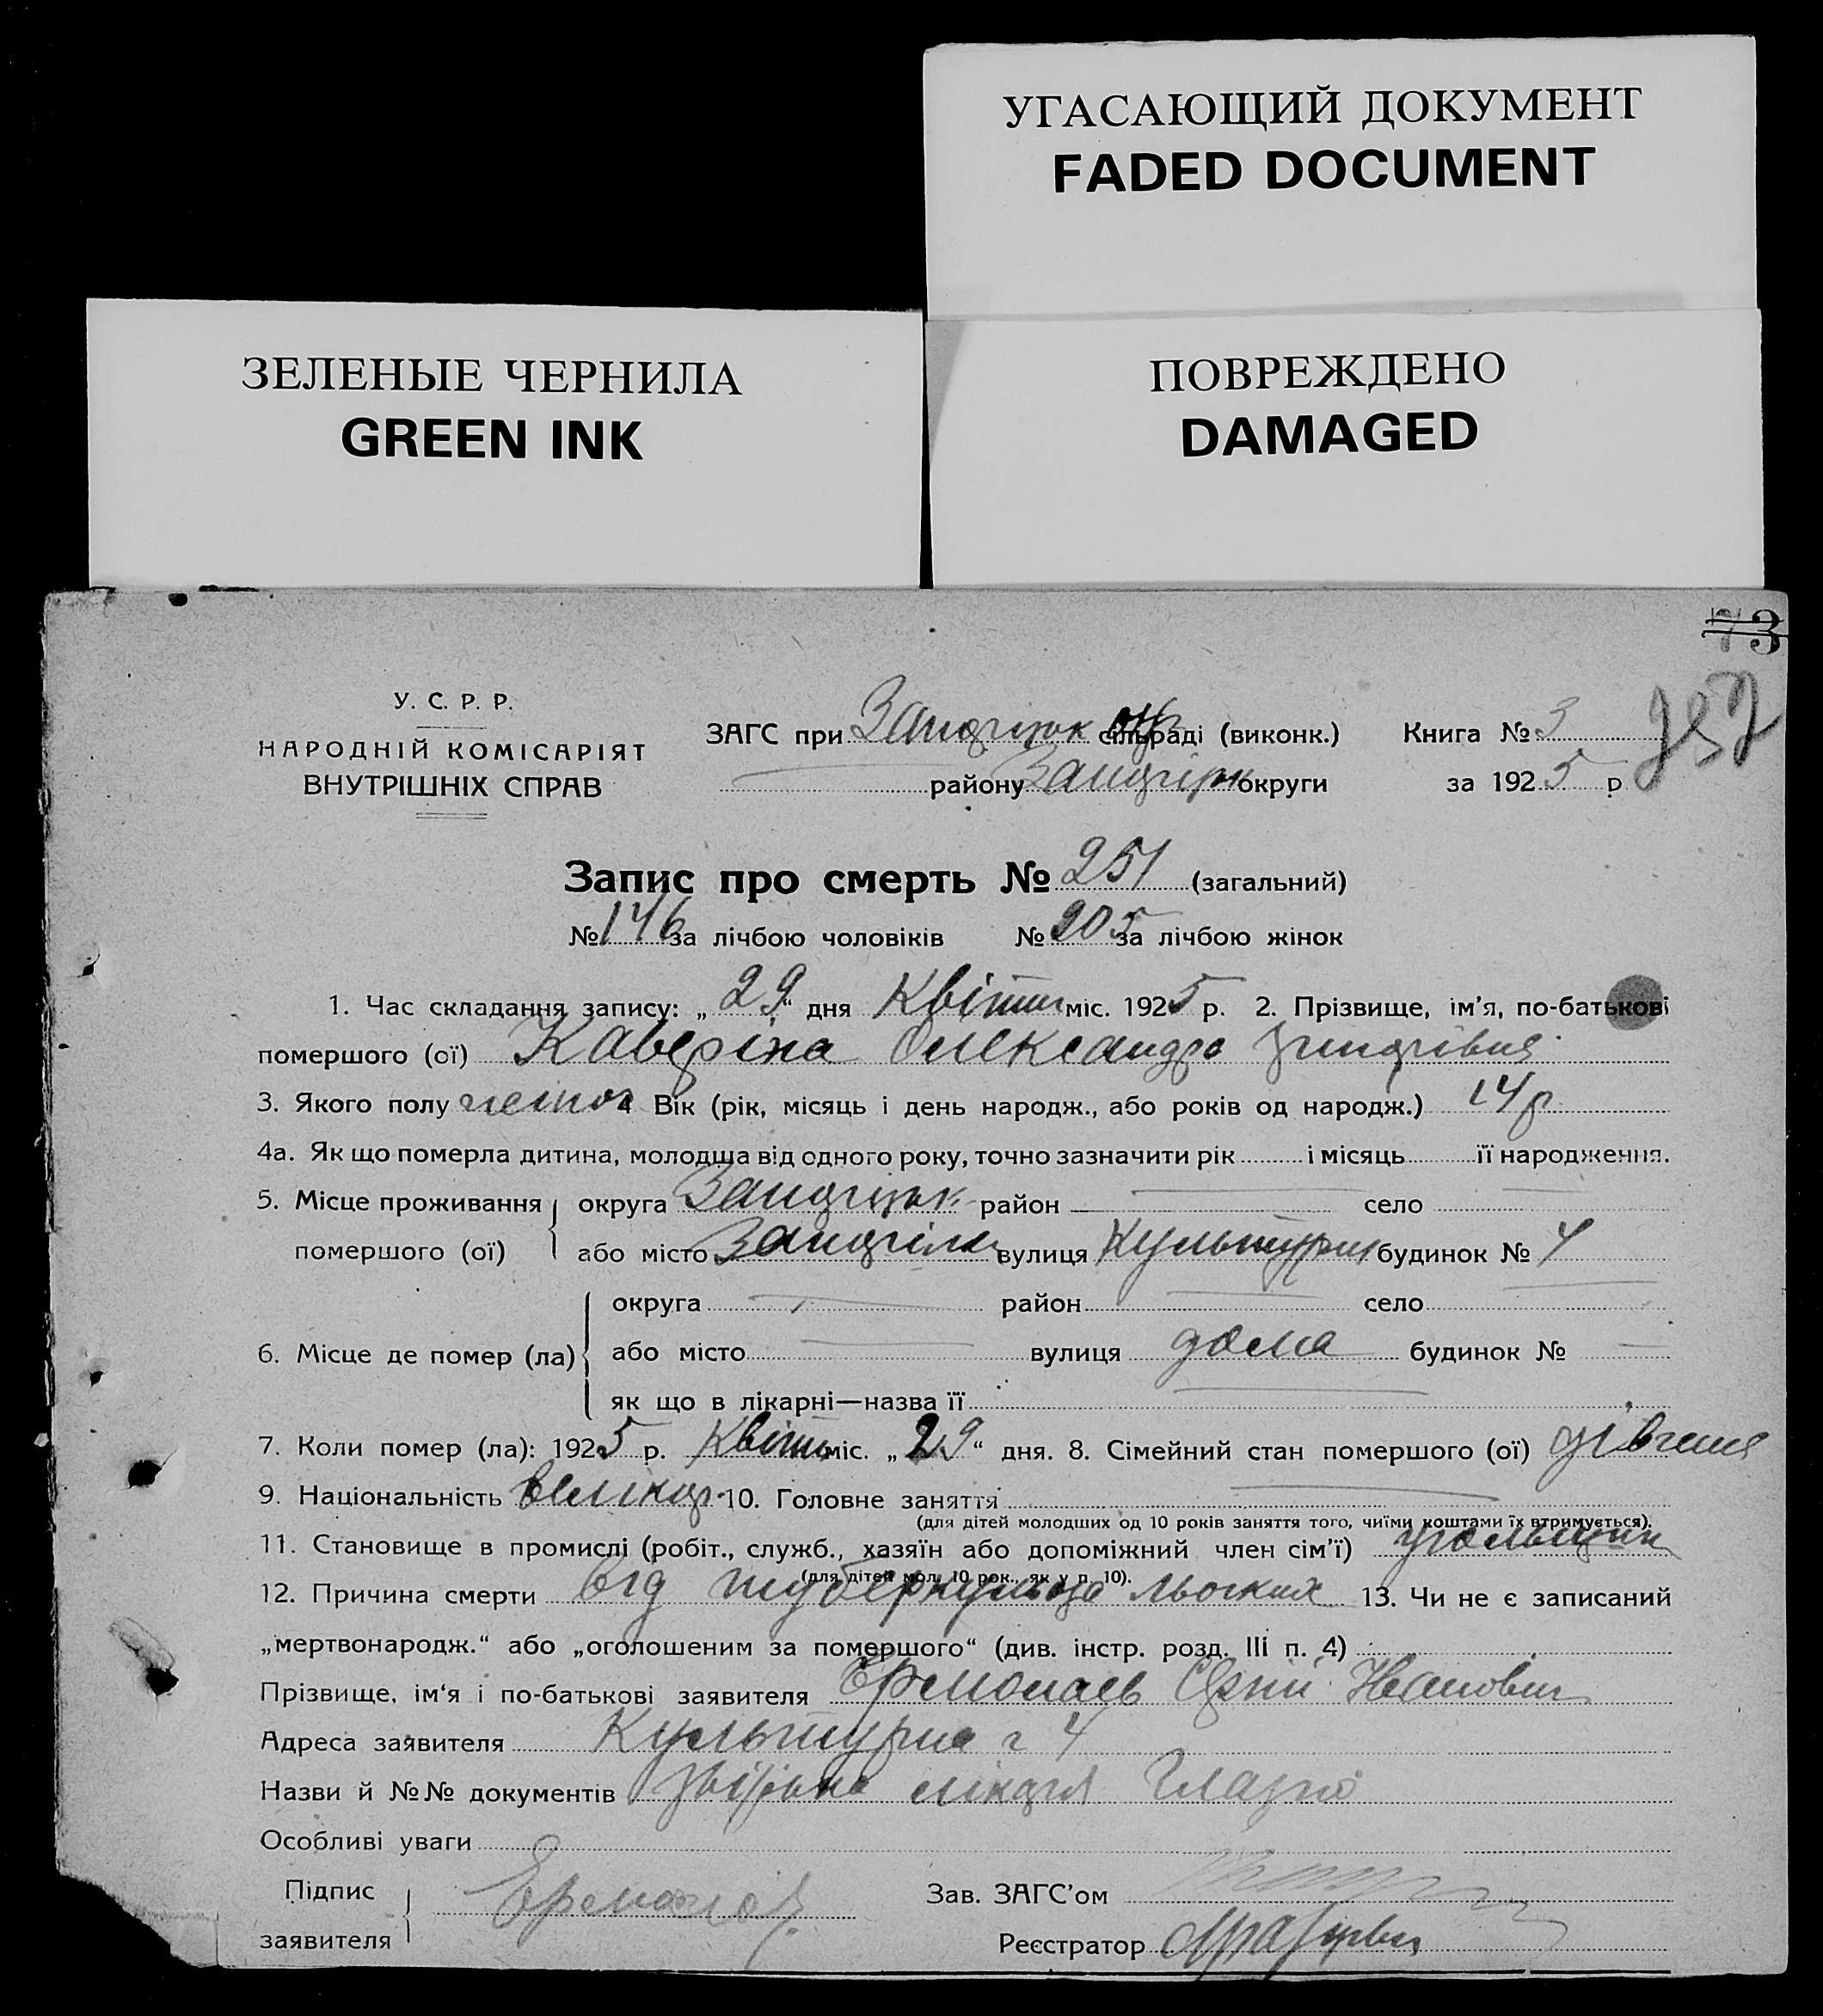 УГАСАЮЩИЙ ДОКУМЕНТ
FADED DOCUMENT
ЗЕЛЕНЫЕ ЧЕРНИЛА
GREEN INK
ПОВРЕЖДЕНО
DAMAGED
73
257
У. С. Р. Р.
НАРОДНІЙ КОМІСАРІЯТ
ВНУТРІШНІХ СПРАВ
ЗАГС при сільраді (виконк.) Книга № 3
району округи за 1925 р
Запис про смерть № 251 (загальний)
№ 146 за лічбою чоловіків № 205 за лічбою жінок
1. Час складання запису: „29“ дня Квітня міс. 1925 р. 2. Прізвище, ім'я, по-батькові
помершого (ої) Каверіна Олександра
3. Якого полу жіноч 4 Вік (рік, місяць і день народж., або років од народж.) 14 р
4а. Як що померла дитина, молодша від одного року, точно зазначити рік і місяць її народження.
5. Місце проживання округа район село
помершого (ої) або місто вулиця Культурна будинок № 4
округа район село
6. Місце де помер (ла) або місто вулиця дома будинок №
як що в лікарні—назва її
7. Коли помер (ла): 1925 р. Квітня міс. „29“ дня. 8. Сімейний стан помершого (ої) дівчина
9. Національність великор 10. Головне заняття
(для дітей молодших од 10 років заняття того, чиїми коштами їх втримується).
11. Становище в промислі (робіт., служб., хазяїн або допоміжний член сім'ї)
(для дітей мол. 10 рок., як у п. 10).
12. Причина смерти від туберкульоза льогких 13. Чи не є записаний
„мертвонародж.“ або „оголошеним за помершого“ (див. інстр. розд. III п. 4)
Прізвище, ім'я і по-батькові заявителя Ермолаев Іванович
Адреса заявителя Культурна 4
Назви й №№ документів
Особливі уваги
Підпис Зав. ЗАГС'ом
заявителя Ермолаев
Реєстратор